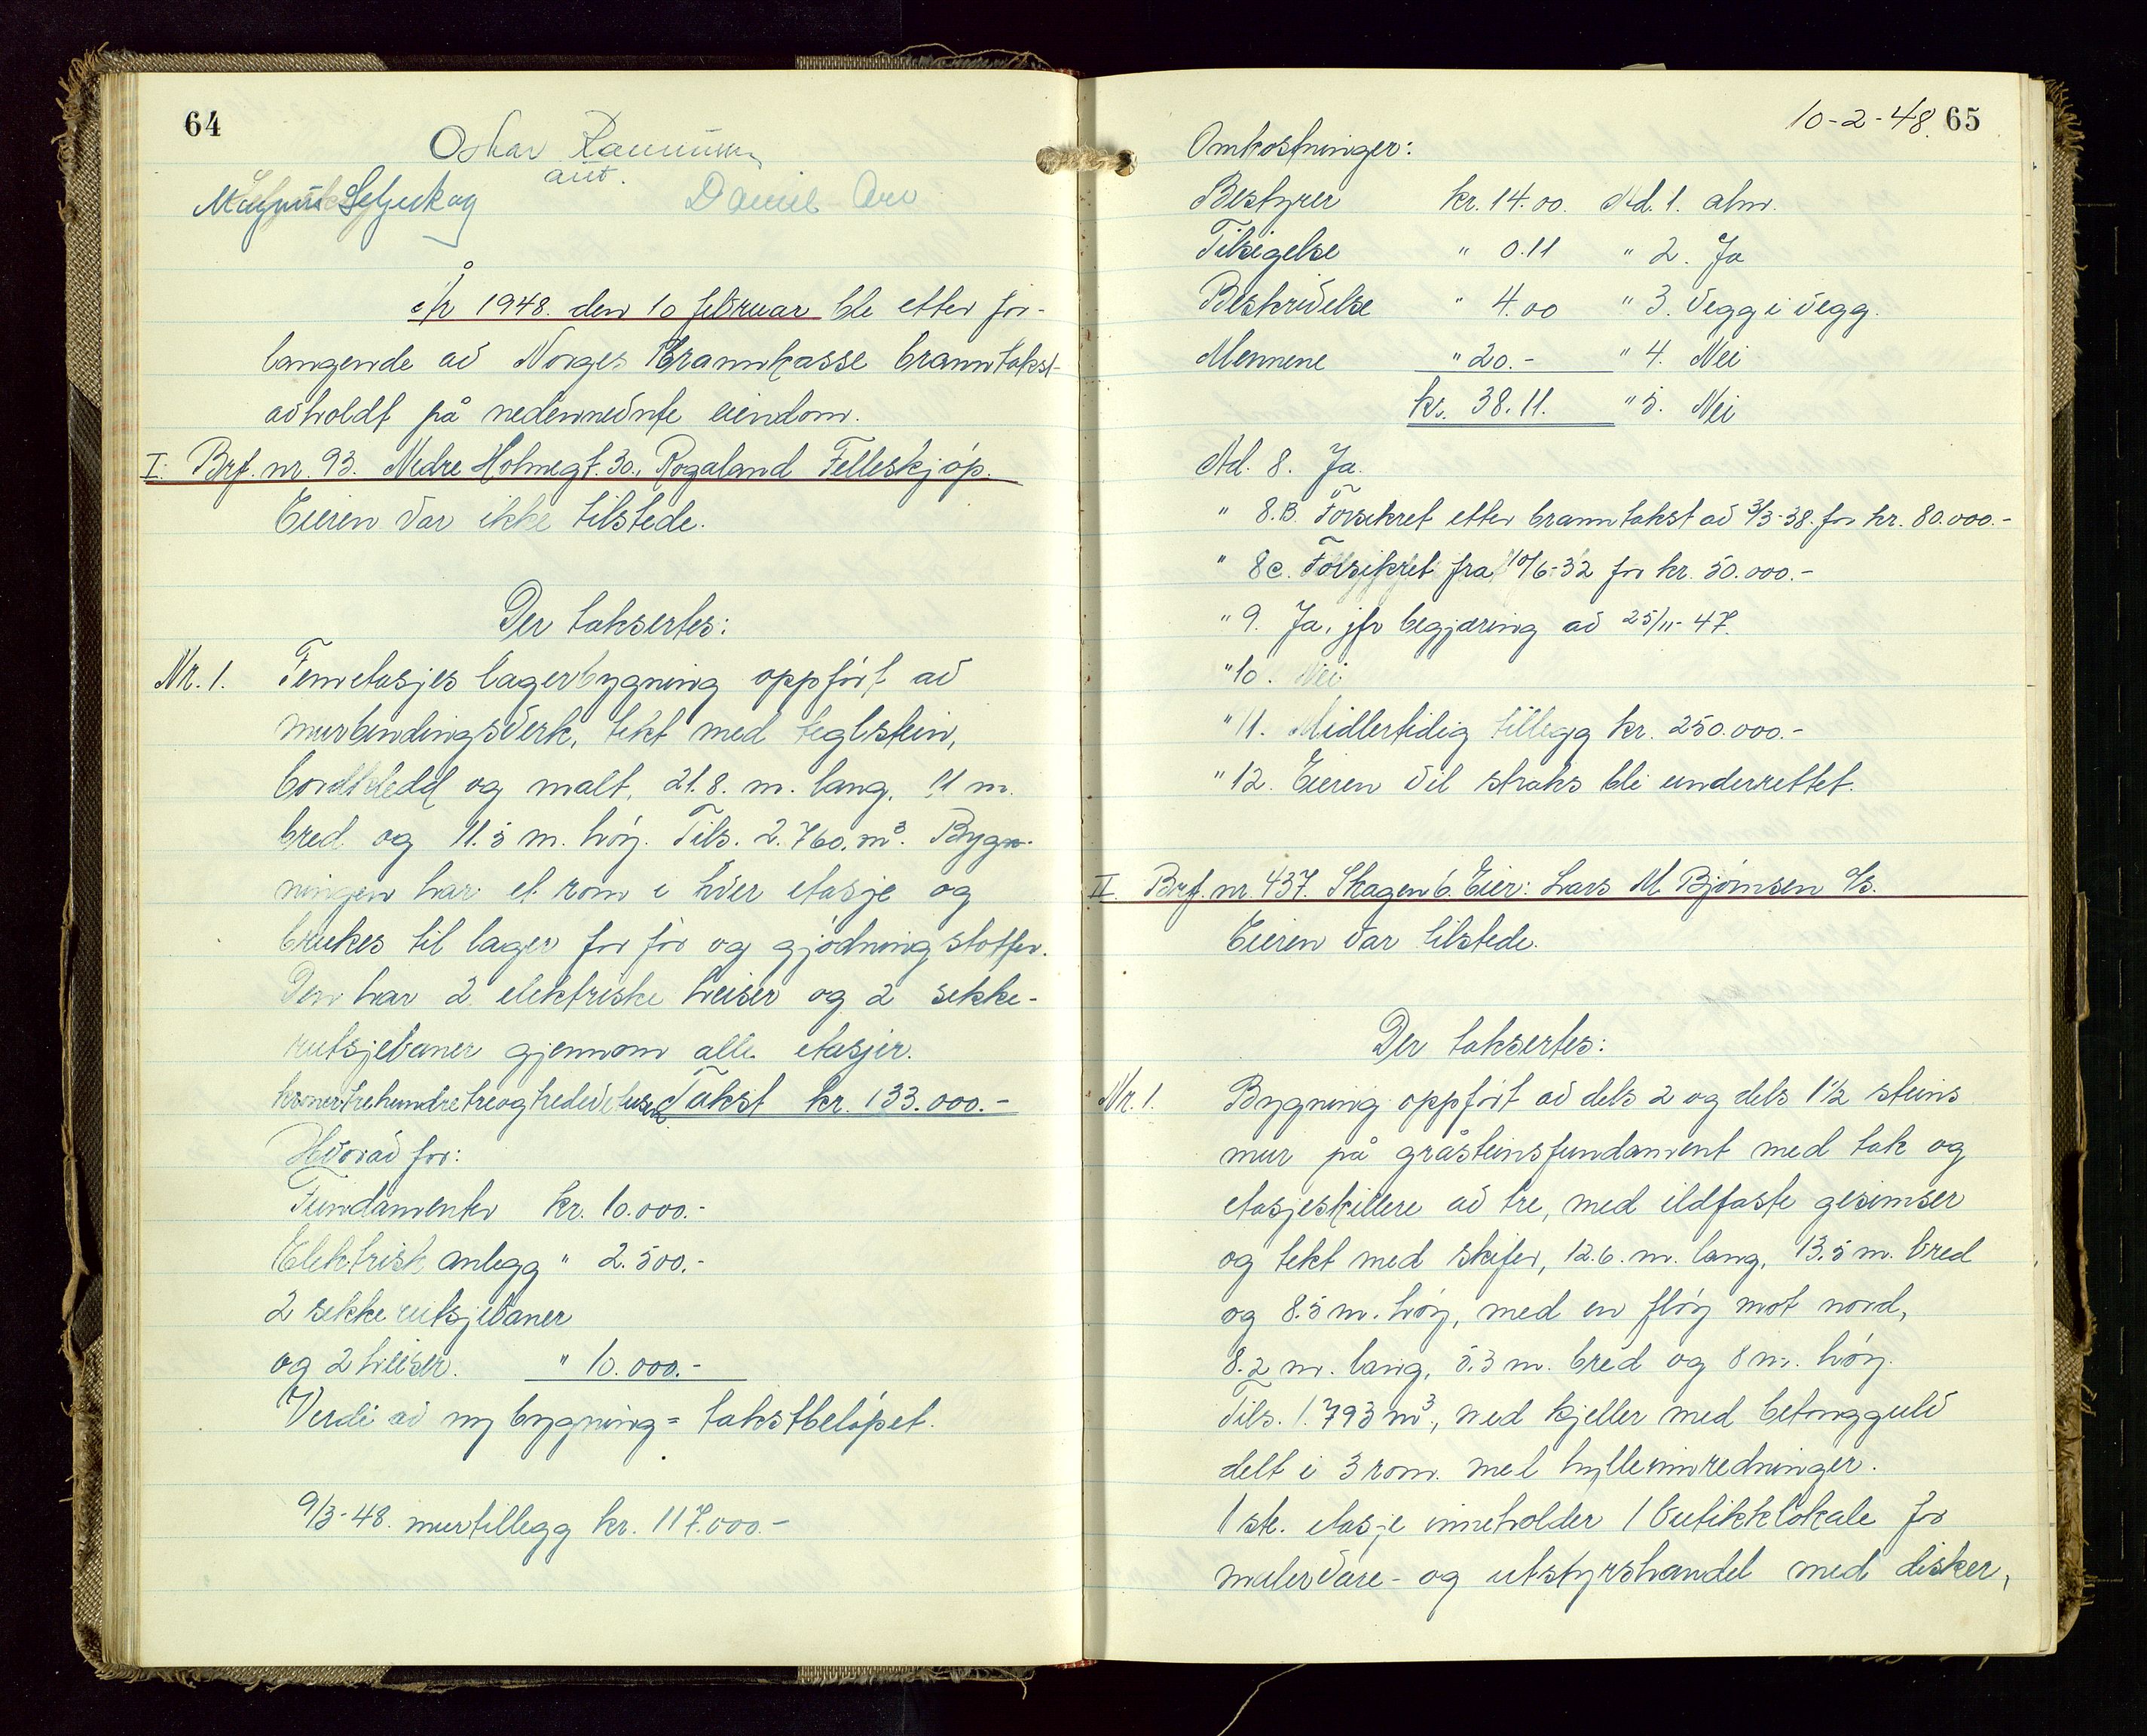 64
Oskar
aut.
Magnus Seljeskog
Daniel Aro
År 1948. den 10 februar ble etter for-
langende av Norges Brannkasse branntakst
avholdt på nedennevnte eiendom.
I. Brf. nr. 93. Nedre Holmegt. 30., Rogaland Felleskjøp.
Eieren var ikke tilstede.
Der taksertes:
Nr. 1. Femetasjes lagerbygning oppført av
murbindingsverk, tekt med teglstein,
bordkledd og malt, 21.8. m. lang, 11 m.
bred og 11.5 m. høy. Tils. 2.760. m³. Byg-
ningen har et rom i hver etasje og
brukes til lager for fôr og gjødningstoffer.
Den har 2 elektriske heiser og 2 sekke-
rutsjebaner gjennom alle etasjer.
kroneretthundretreogtredevetusen Takst kr. 133.000.-
Hvorav for:
Fundamenter kr. 10.000.-
Elektrisk anlegg " 2.500.-
2 sekkerutsjebaner
og 2 heiser. " 10.000.-
Verdi av ny bygning = takstbeløpet.
9/3-48. murtillegg kr. 117.000.-
10-2-48. 65
Omkostninger:
Bestyrer kr. 14.00. Ad. 1. alm.
Tilsigelse " 0.11 " 2. Ja
Beskrivelse " 4.00 " 3. Vegg i vegg.
Mennene " 20.- " 4. Nei
kr. 38.11. " 5. Nei
Ad. 8. Ja.
" 8.B. Forsikret etter branntakst av 3/3-38. for kr. 80.000.-
" 8c. Forsikret fra 10/6-32 for kr. 50.000.-
" 9. Ja, jfr begjæring av 25/11-47.
" 10. Nei
" 11. Midlertidig tillegg kr. 250.000.-
" 12. Eieren vil straks bli underrettet.
II. Brf. nr. 437. Skagen 6. Eier: Lars M. Bjørnsen A/s.
Eieren var tilstede.
Der taksertes:
Nr. 1. Bygning oppført av dels 2 og dels 1 1/2 steins
mur på gråsteinsfundament med tak og
etasjeskillere av tre, med ildfaste gesimser
og tekt med skifer, 12.6. m. lang, 13.5 m. bred
og 8.5 m. høy, med en fløy mot nord,
8.2 m. lang, 5.3 m. bred og 8 m. høy.
Tils. 1.793 m³., med kjeller med betonggulv
delt i 3 rom. med hylleinnredninger.
1 ste. etasje inneholder 1 butikklokale for
malervare- og utstyrshandel med disker,